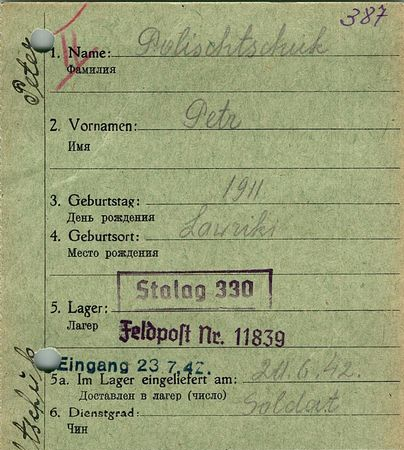 387
IV.
1. Name: Polischtschuk
Фамилия
Peter
2. Vornamen: Petr
Имя
3. Geburtstag: 1911
День рождения
4. Geburtsort: Lawriki
Место рождения
Stalag 330
5. Lager:
Лагер
Feldpost Nr. 11839
Eingang 23.7.42.
5a. Im Lager eingeliefert am: 20.6.42.
Доставлен в лагер (число)
6. Dienstgrad: Soldat
Чин